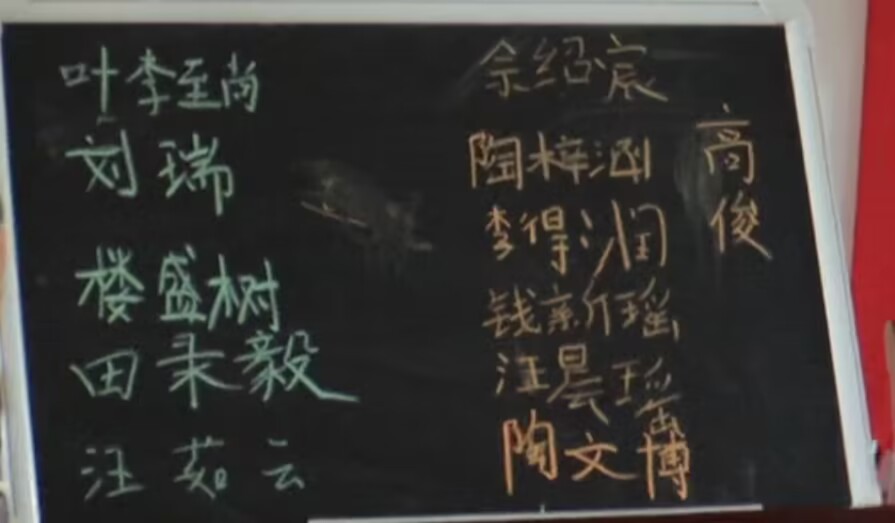 叶李至尚
刘瑞
楼盛树
田未毅
汪茹云
佘绍宸
陶梓涵
李得润
钱新瑶
汪晨瑶
陶文博
高俊